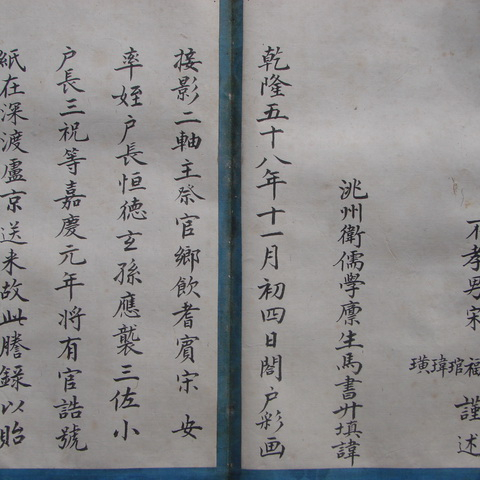 不孝男宋
福琯瑋璜
謹述
洮州衛儒學廩生馬書廾填諱
乾隆五十八年十一月初四日閤户彩画
接影二軸主祭官鄉飲耆賓宋安
率姪户長恒德玄孫應襲三佐小
户長三祝等嘉慶元年將有官誥號
紙在深渡盧京送来故此謄錄以貽